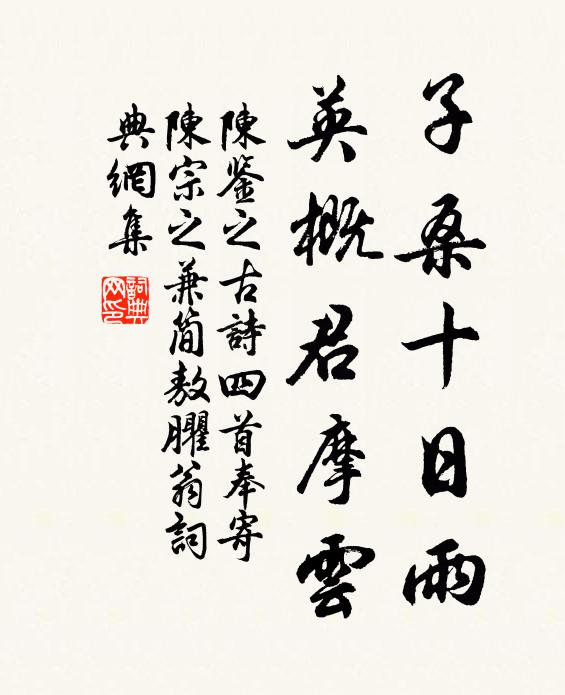 子桑十日雨
英概君摩雲
陳鑒之古詩四首奉寄
陳宗之兼簡敖臞翁詞
典網集
詞典網印